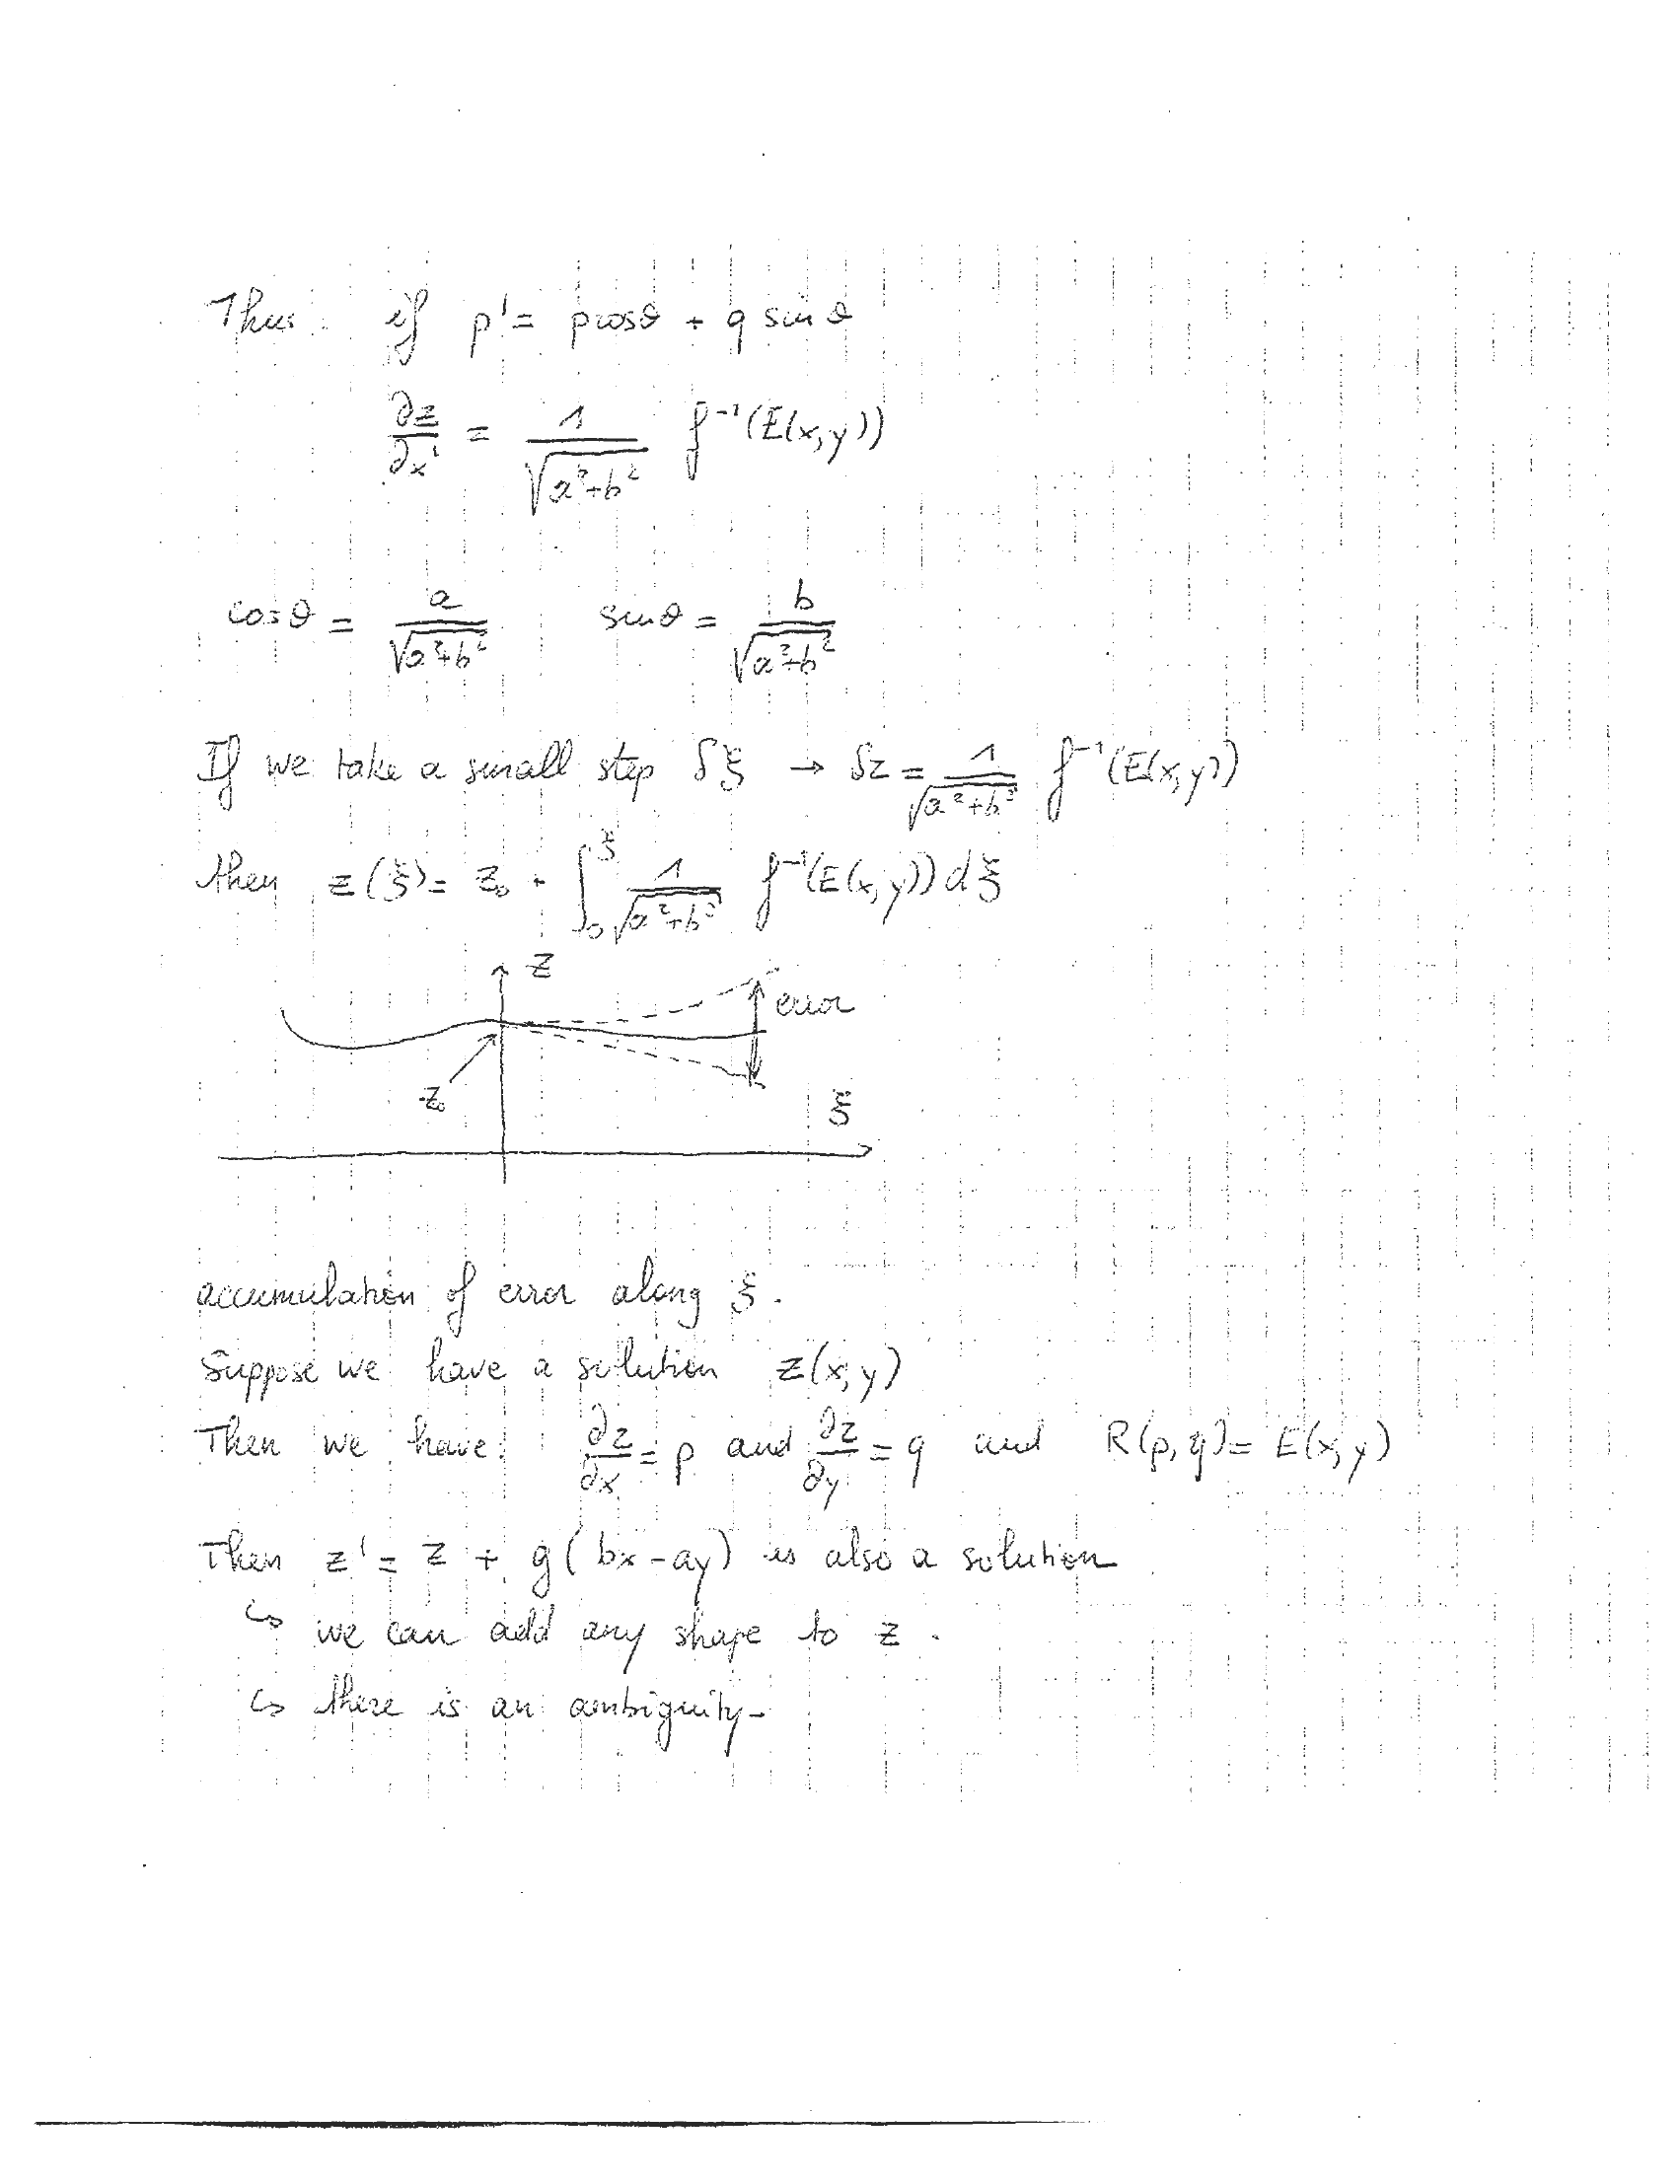 Thus if p' = p cosθ + q sin θ
∂z/∂x' = 1/√(a²+b²) f⁻¹(E(x,y))
cosθ = a/√(a²+b²) sinθ = b/√(a²+b²)
If we take a small step δξ → δz = 1/√(a²+b²) f⁻¹(E(x,y))
then z(ξ) = z₀ + ∫₀^ξ 1/√(a²+b²) f⁻¹(E(x,y)) dξ
z
error
z₀
ξ
accumulation of error along ξ.
Suppose we have a solution z(x,y)
Then we have: ∂z/∂x = p and ∂z/∂y = q and R(p,q) = E(x,y)
Then z' = z + g(bx-ay) is also a solution
↳ we can add any shape to z.
↳ there is an ambiguity-